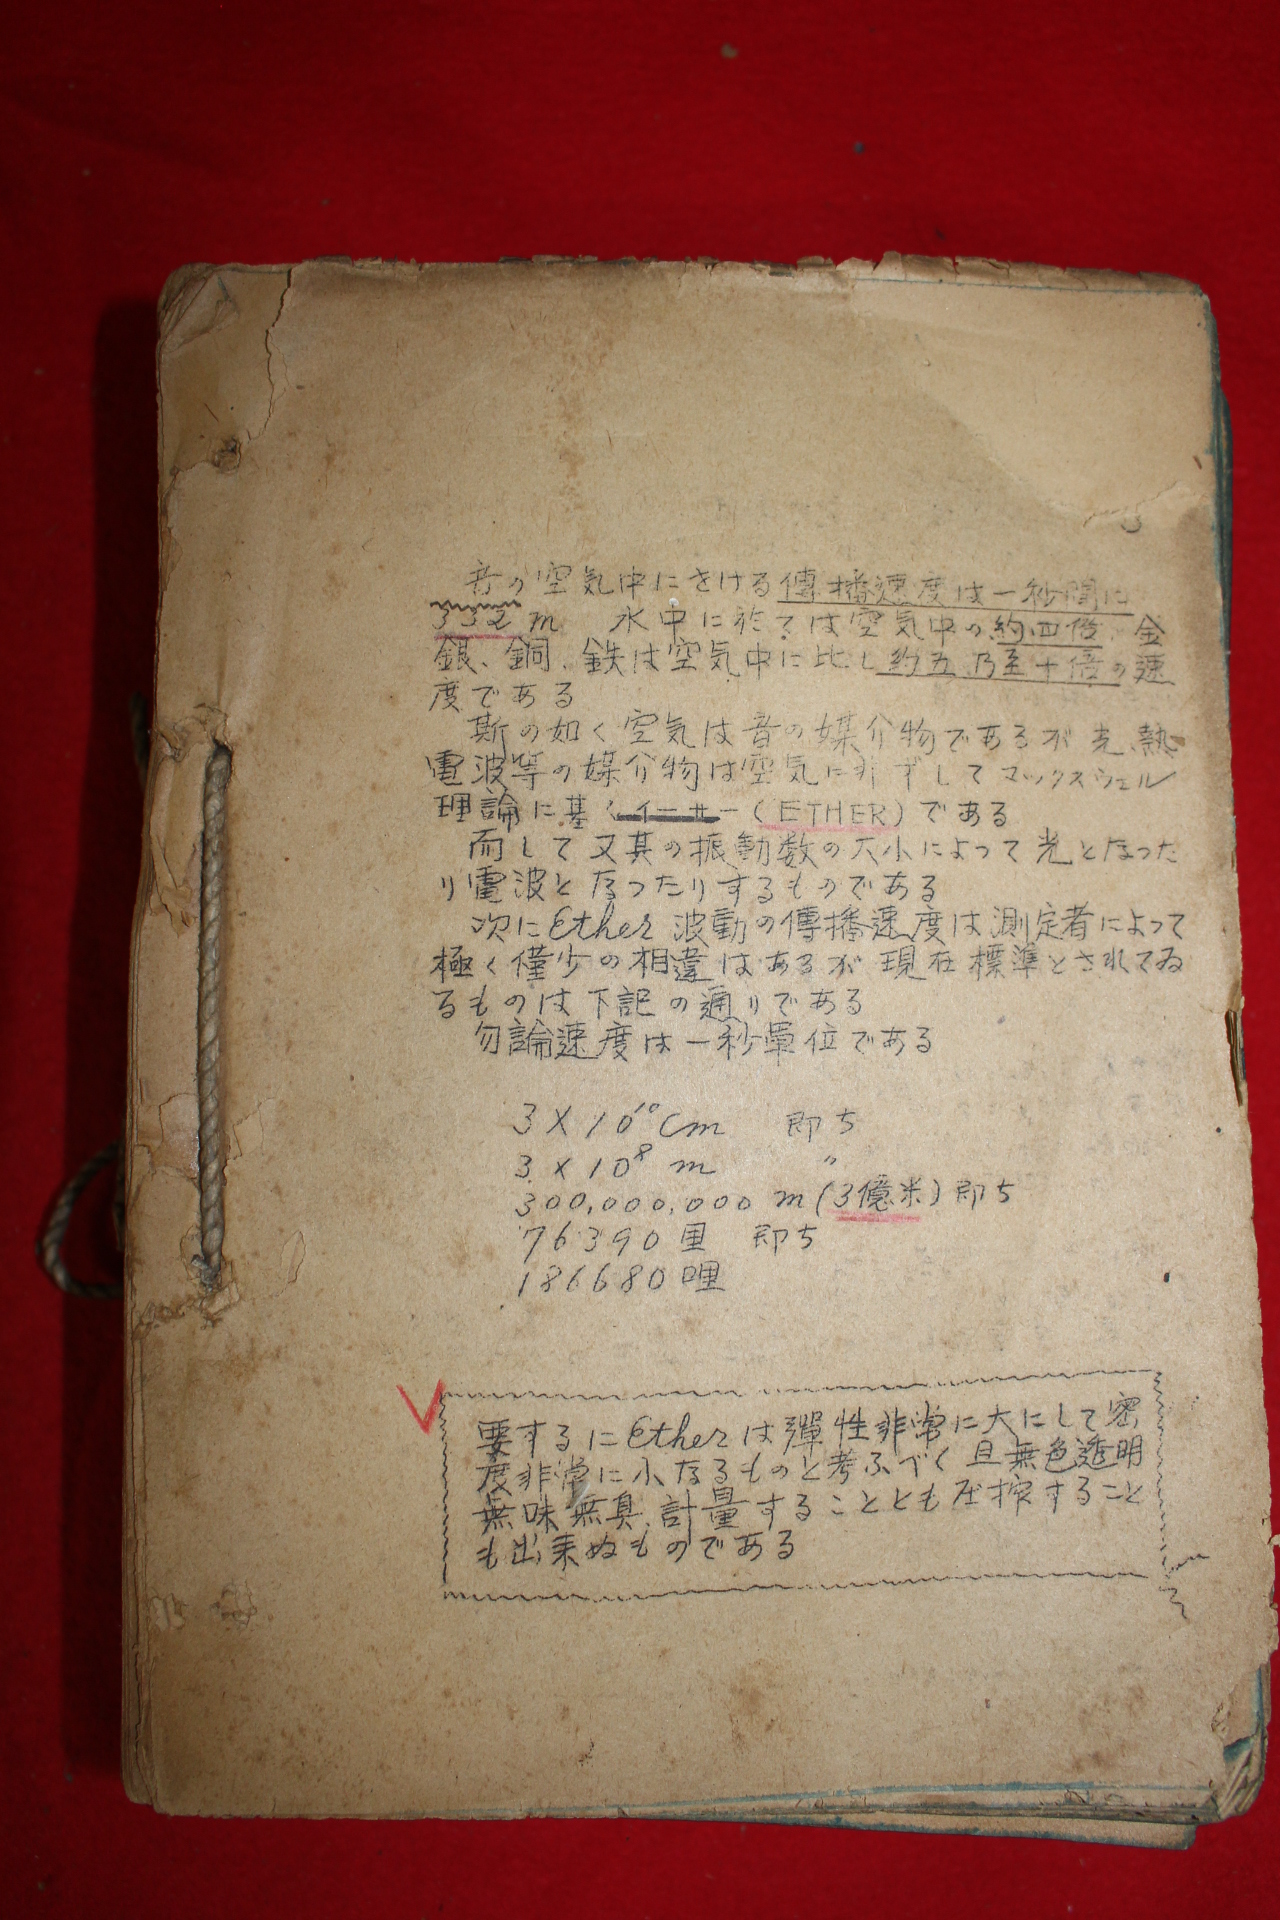 3
音の空気中にをける傳播速度は一秒間に
332m 水中に於ては空気中の約四倍、金
銀、銅、鉄は空気中に比し約五乃至十倍の速
度である
斯の如く空気は音の媒介物であるが光、熱
電波等の媒介物は空気に非ずしてマックスウェル
理論に基くイーサー(ETHER)である
而して又其の振動数の大小によって光となった
り電波となったりするものである
次にEther波動の傳播速度は測定者によって
極く僅少の相違はあるが現在標準とされてゐ
るものは下記の通りである
勿論速度は一秒單位である
3×10¹⁰cm 即ち
3×10⁸ m 〃
300,000,000 m(3億米)即ち
76390里 即ち
186680哩
要するにEtherは彈性非常に大にして密
度非常に小なるものと考ふべく且無色透明
無味無臭、計量することとも圧搾すること
も出来ぬものである